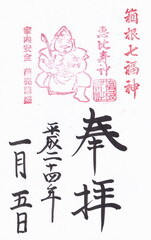 箱根七福神
恵比寿神
家内安全
奉拝
平成二十四年
一月五日